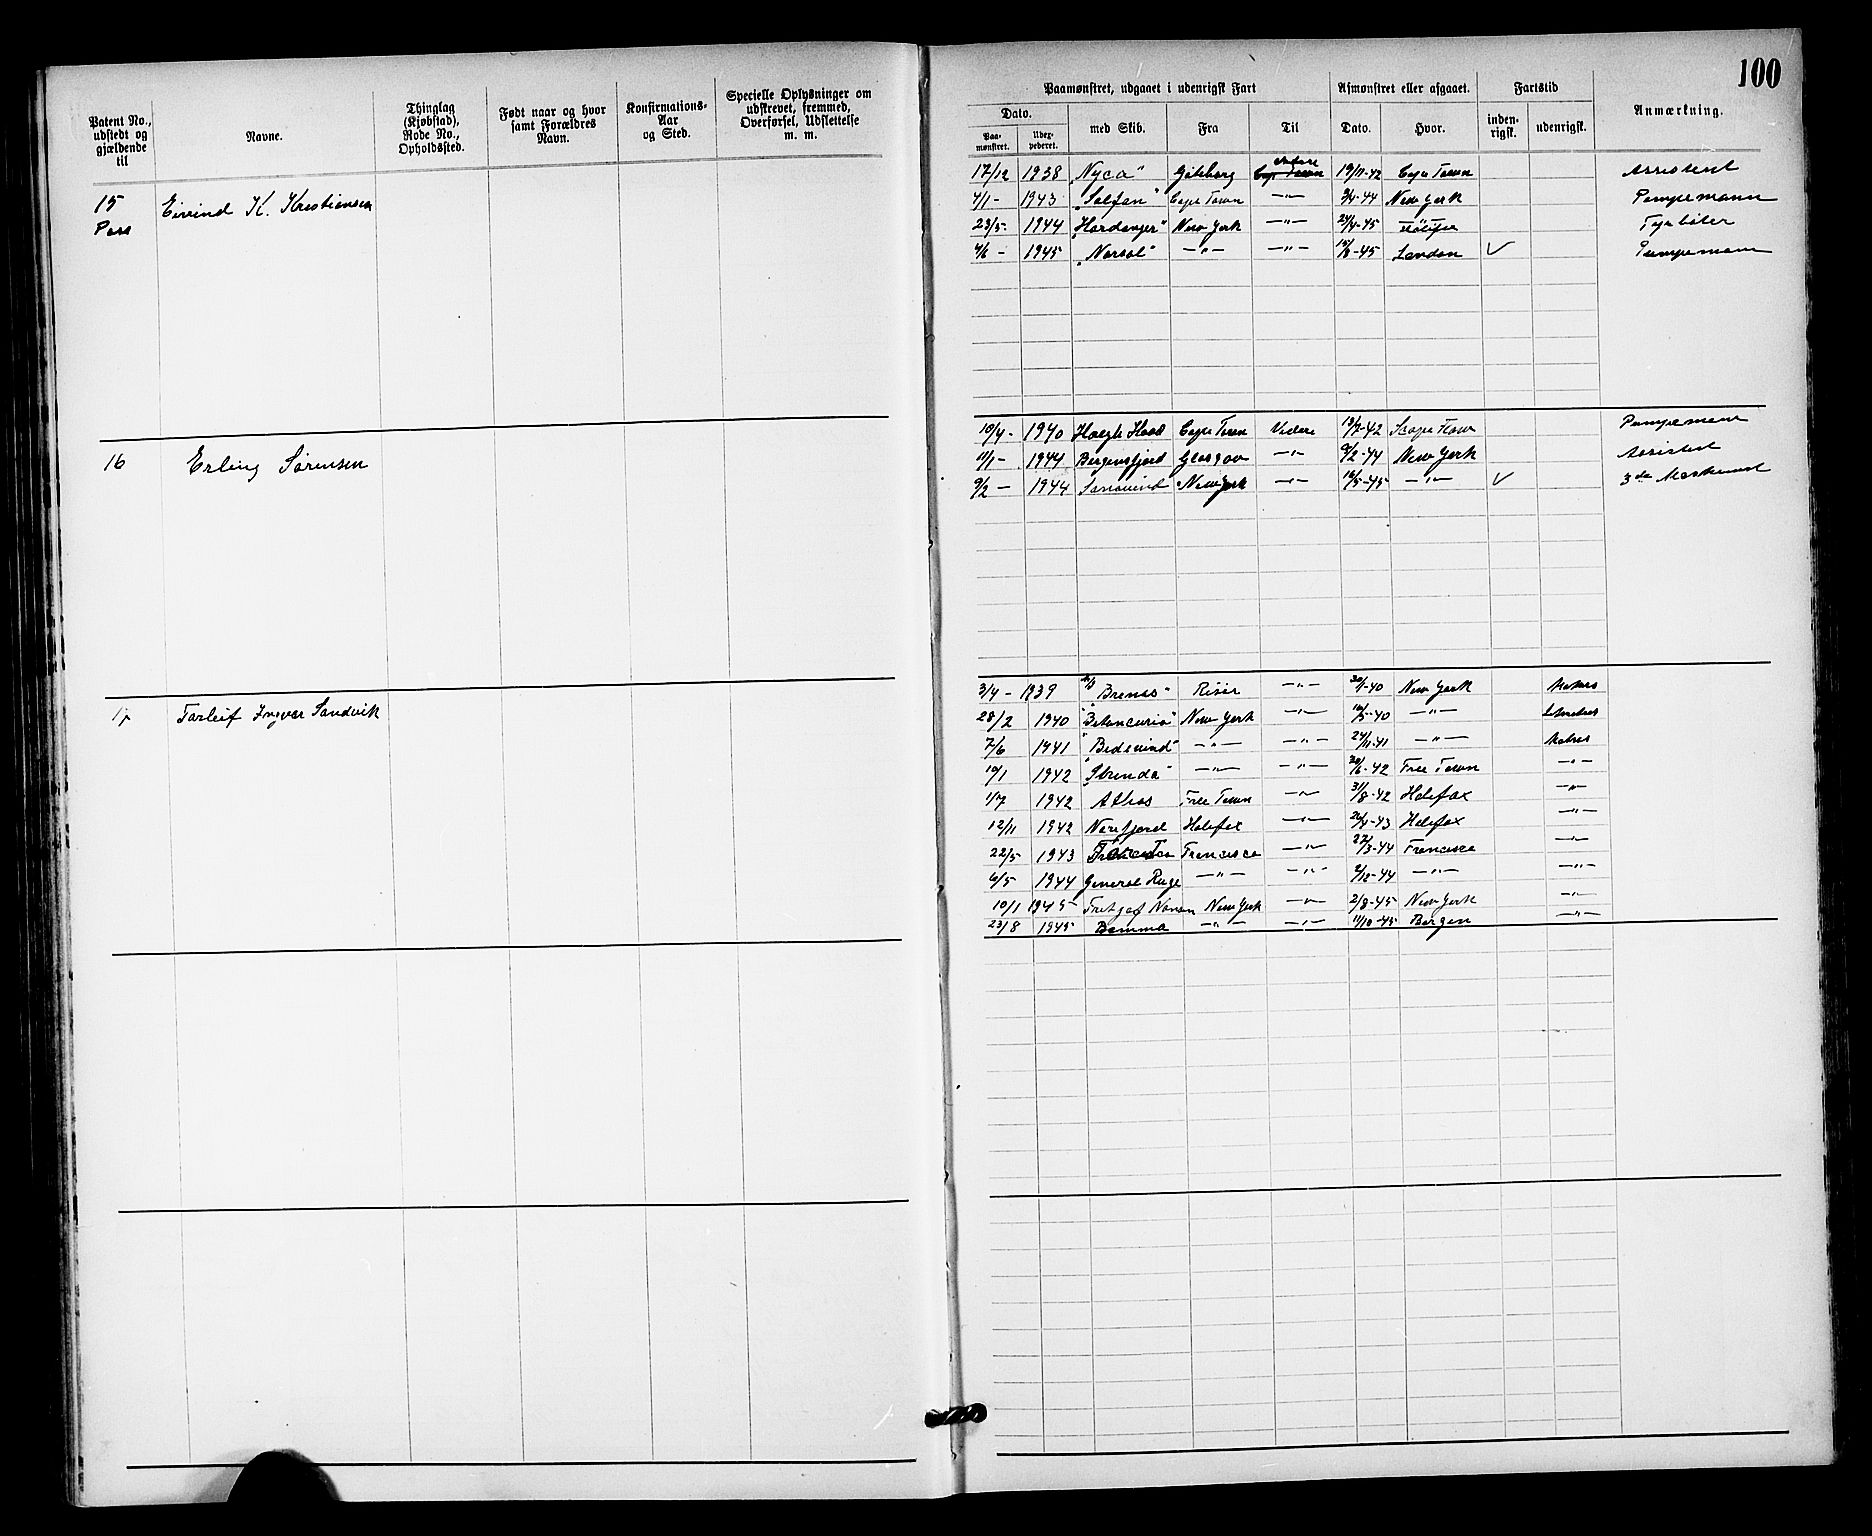 100
Patent No., udstedt og gjældende til
Navne.
Thinglag (Kjøbstad), Rode No., Opholdssted.
Født naar og hvor samt Forældres Navn.
Konfirmations-Aar og Sted.
Specielle Oplysninger om udskrevet, fremmed, Overførsel, Udslettelse m. m.
Paamønstret, udgaaet i udenrigsk Fart
Afmønstret eller afgaaet.
Fartstid
Anmærkning.
Dato.
Paa-mønstret.
Udex-pederet.
med Skib.
Fra
Til
Dato.
Hvor.
inden-rigsk.
udenrigsk.
15 Eivind K. Kristiansen
Pass
17/12 1938 "Nyca" Göteborg Cape Town 19/11-42 Cape Town Assistent
4/1- 1943 "Solfon" Cape Town -"- 3/4-44 New York Pumpemann
23/5- 1944 "Hardanger" New York -"- 24/4-45 Fyrbøter
4/6- 1945 "Norsol" -"- -"- 15/8-45 London ✓ Pumpemann
16 Erling Sørensen
10/4- 1940 Høegh Hood Cape Town Videre 13/2-42 Cape Town Pumpemann
11/1- 1944 Bergensfjord Glasgow -"- 9/2-44 New York Assistent
9/2- 1944 New York -"- 16/5-45 -"- ✓ 3de Maskinist
17 Torleif Ingvar Sandvik
3/4- 1939 "Brenas" Risør -"- 30/1-40 New York Matros
28/2 1940 "Betancuria" New York -"- 16/5-40 -"- Lmatros
7/6 1941 "Bidevind" -"- -"- 24/11-41 -"- Matros
10/1 1942 "Strinda" -"- -"- 20/6-42 Free Town -"-
1/7 1942 Athos Free Town -"- 31/8-42 Halifax -"-
12/11 1942 Norefjord Halifax -"- 26/4-43 Halifax -"-
22/5 1943 Francisco -"- 27/3-44 Francisco -"-
6/5 1944 General Ruge -"- -"- 2/12-44 -"- -"-
10/1 1945 Fridtjof Nansen New York -"- 2/8-45 New York -"-
23/8 1945 Bemma -"- -"- 11/10-45 Bergen -"-